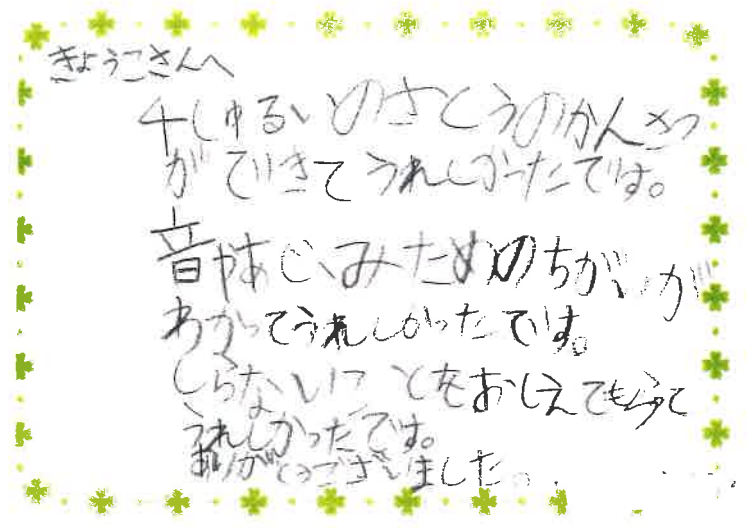 きょうこさんへ
4しゅるいのさとうのかんさつ
ができてうれしかったです。
音やあじ、みためのちがいが
わかってうれしかったです。
しらないことをおしえてもらって
うれしかったです。
ありがとうございました。